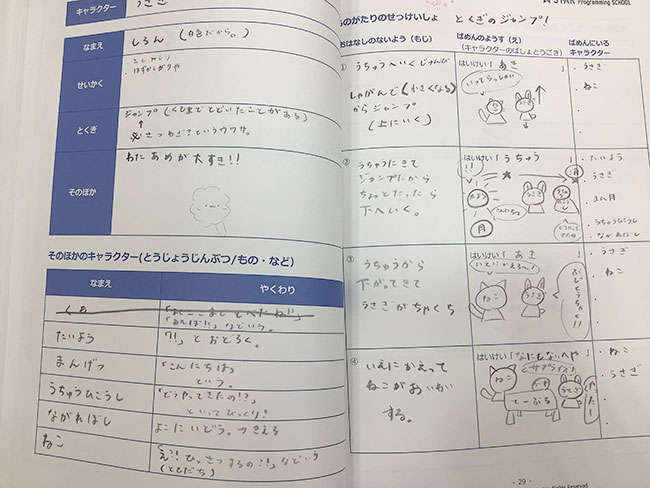 キャラクター
うさぎ
なまえ
しろん(白色だから。)
せいかく
・はずかしがりや
とくぎ
ジャンプ(くもまでとどいたことがある)
↑
必さつわざ?というウワサ。
そのほか
わたあめが大すき!!
そのほかのキャラクター(とうじょうじんぶつ/もの・など)
なまえ
やくわり
くも
などいう。
たいよう
「!!」とおどろく。
まんげつ
「こんにちは」
という。
うちゅうひこうし
「どうやってきたの!?」
といってびっくり!
ながればし
よこにいどう。つきえる
ねこ
などいう
(ともだち)
Programming SCHOOL
ものがたりのせっけいしょ
とくぎのジャンプ!
おはなしのないよう(もじ)
ばめんのようす(え)
(キャラクターのばしょとうごき)
ばめんにいる
キャラクター
①
うちゅうへいくじゅんび
しゃがんで(小さくなる)
からジャンプ
(上にいく)
はいけい「あき」
いってらっしゃい
うさぎ
・うさぎ
ねこ
②
うちゅうにきて
ジャンプだから
ちょっとたったら
下へいく。
はいけい「うちゅう」
!!
たいよう
うさぎ
月
こんにちは
・たいよう
うさぎ
・まん月
・うちゅうひこうし
・ながればし
③
うちゅうから
下がってきて
うさぎがちゃくち
はいけい「あき」
ねこ
うさぎ
・うさぎ
ねこ
④
いえにかえって
ねこがおいわい
する。
はいけい「なにもないへや」
サプライズ!
ねこ
うさぎ
てーぶる
やったー!
・ねこ
・うさぎ
- 29 -
Rights Reserved